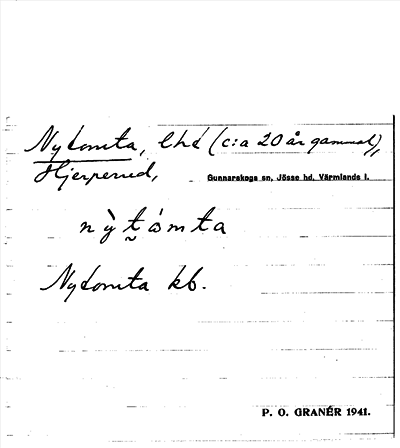 Nytomta, lht (c:a 20 år gammal),
Hjerperud,
Gunnarskogs sn, Jösse hd, Värmlands l.
nỳt̰ómta
Nytomta kb.
P. O. GRANÉR 1941.